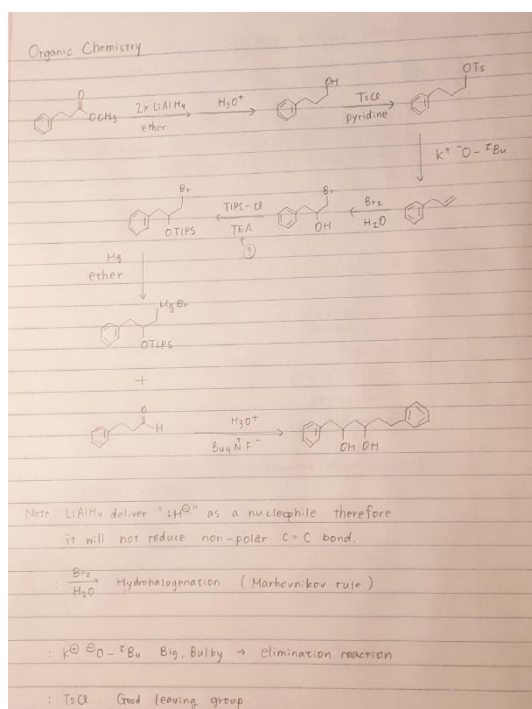 Organic Chemistry
O
OCH3
2x LiAlH4
ether
H3O+
OH
TsCl
pyridine
OTs
K+ -O-tBu
Br
OTIPS
TIPS-Cl
TEA
?
Br
OH
Br2
H2O
Mg
ether
MgBr
OTIPS
+
O
H
H3O+
Bu4N+F-
OH OH
Note : LiAlH4 deliver ":H⊖" as a nucleophile therefore
it will not reduce non-polar C=C bond.
: Br2
H2O
Hydrohalogenation (Markovnikov rule)
: K⊕ ⊖O-tBu Big, Bulky → elimination reaction
: TsCl Good leaving group